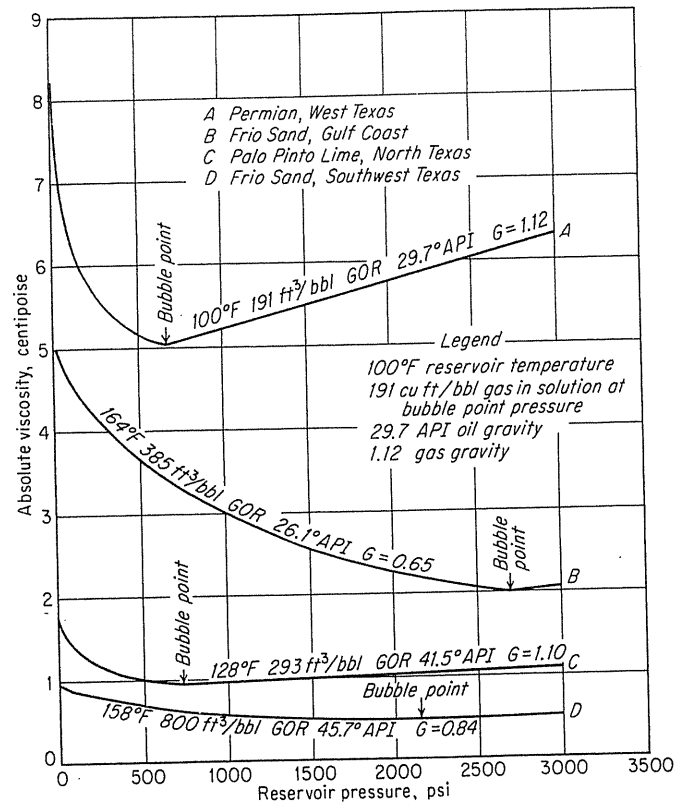 9
8
7
6
5
4
3
2
1
0
Absolute viscosity, centipoise
A Permian, West Texas
B Frio Sand, Gulf Coast
C Palo Pinto Lime, North Texas
D Frio Sand, Southwest Texas
Bubble point
100°F 191 ft³/bbl GOR 29.7°API G=1.12
A
Legend
100°F reservoir temperature
191 cu ft/bbl gas in solution at
bubble point pressure
29.7 API oil gravity
1.12 gas gravity
164°F 385 ft³/bbl GOR 26.1°API G=0.65
Bubble
point
B
Bubble point
128°F 293 ft³/bbl GOR 41.5°API G=1.10
C
Bubble point
158°F 800 ft³/bbl GOR 45.7°API G=0.84
D
0 500 1000 1500 2000 2500 3000 3500
Reservoir pressure, psi